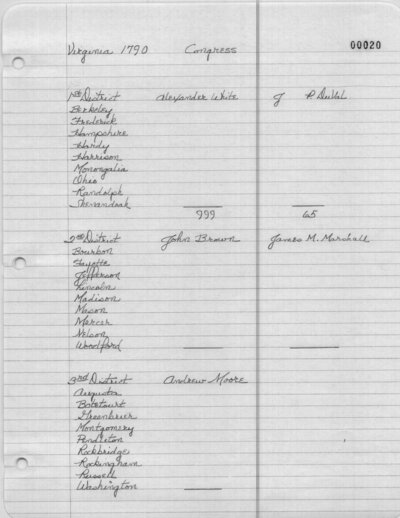 Virginia 1790 Congress 00020
1st District Alexander White J P DuVal
Berkeley
Frederick
Hampshire
Hardy
Harrison
Monongalia
Ohio
Randolph
Shenandoah
999 65
2nd District John Brown James M. Marshall
Bourbon
Fayette
Jefferson
Lincoln
Madison
Mason
Mercer
Nelson
Woodford
3rd District Andrew Moore
Augusta
Botetourt
Greenbrier
Montgomery
Pendleton
Rockbridge
Rockingham
Russell
Washington